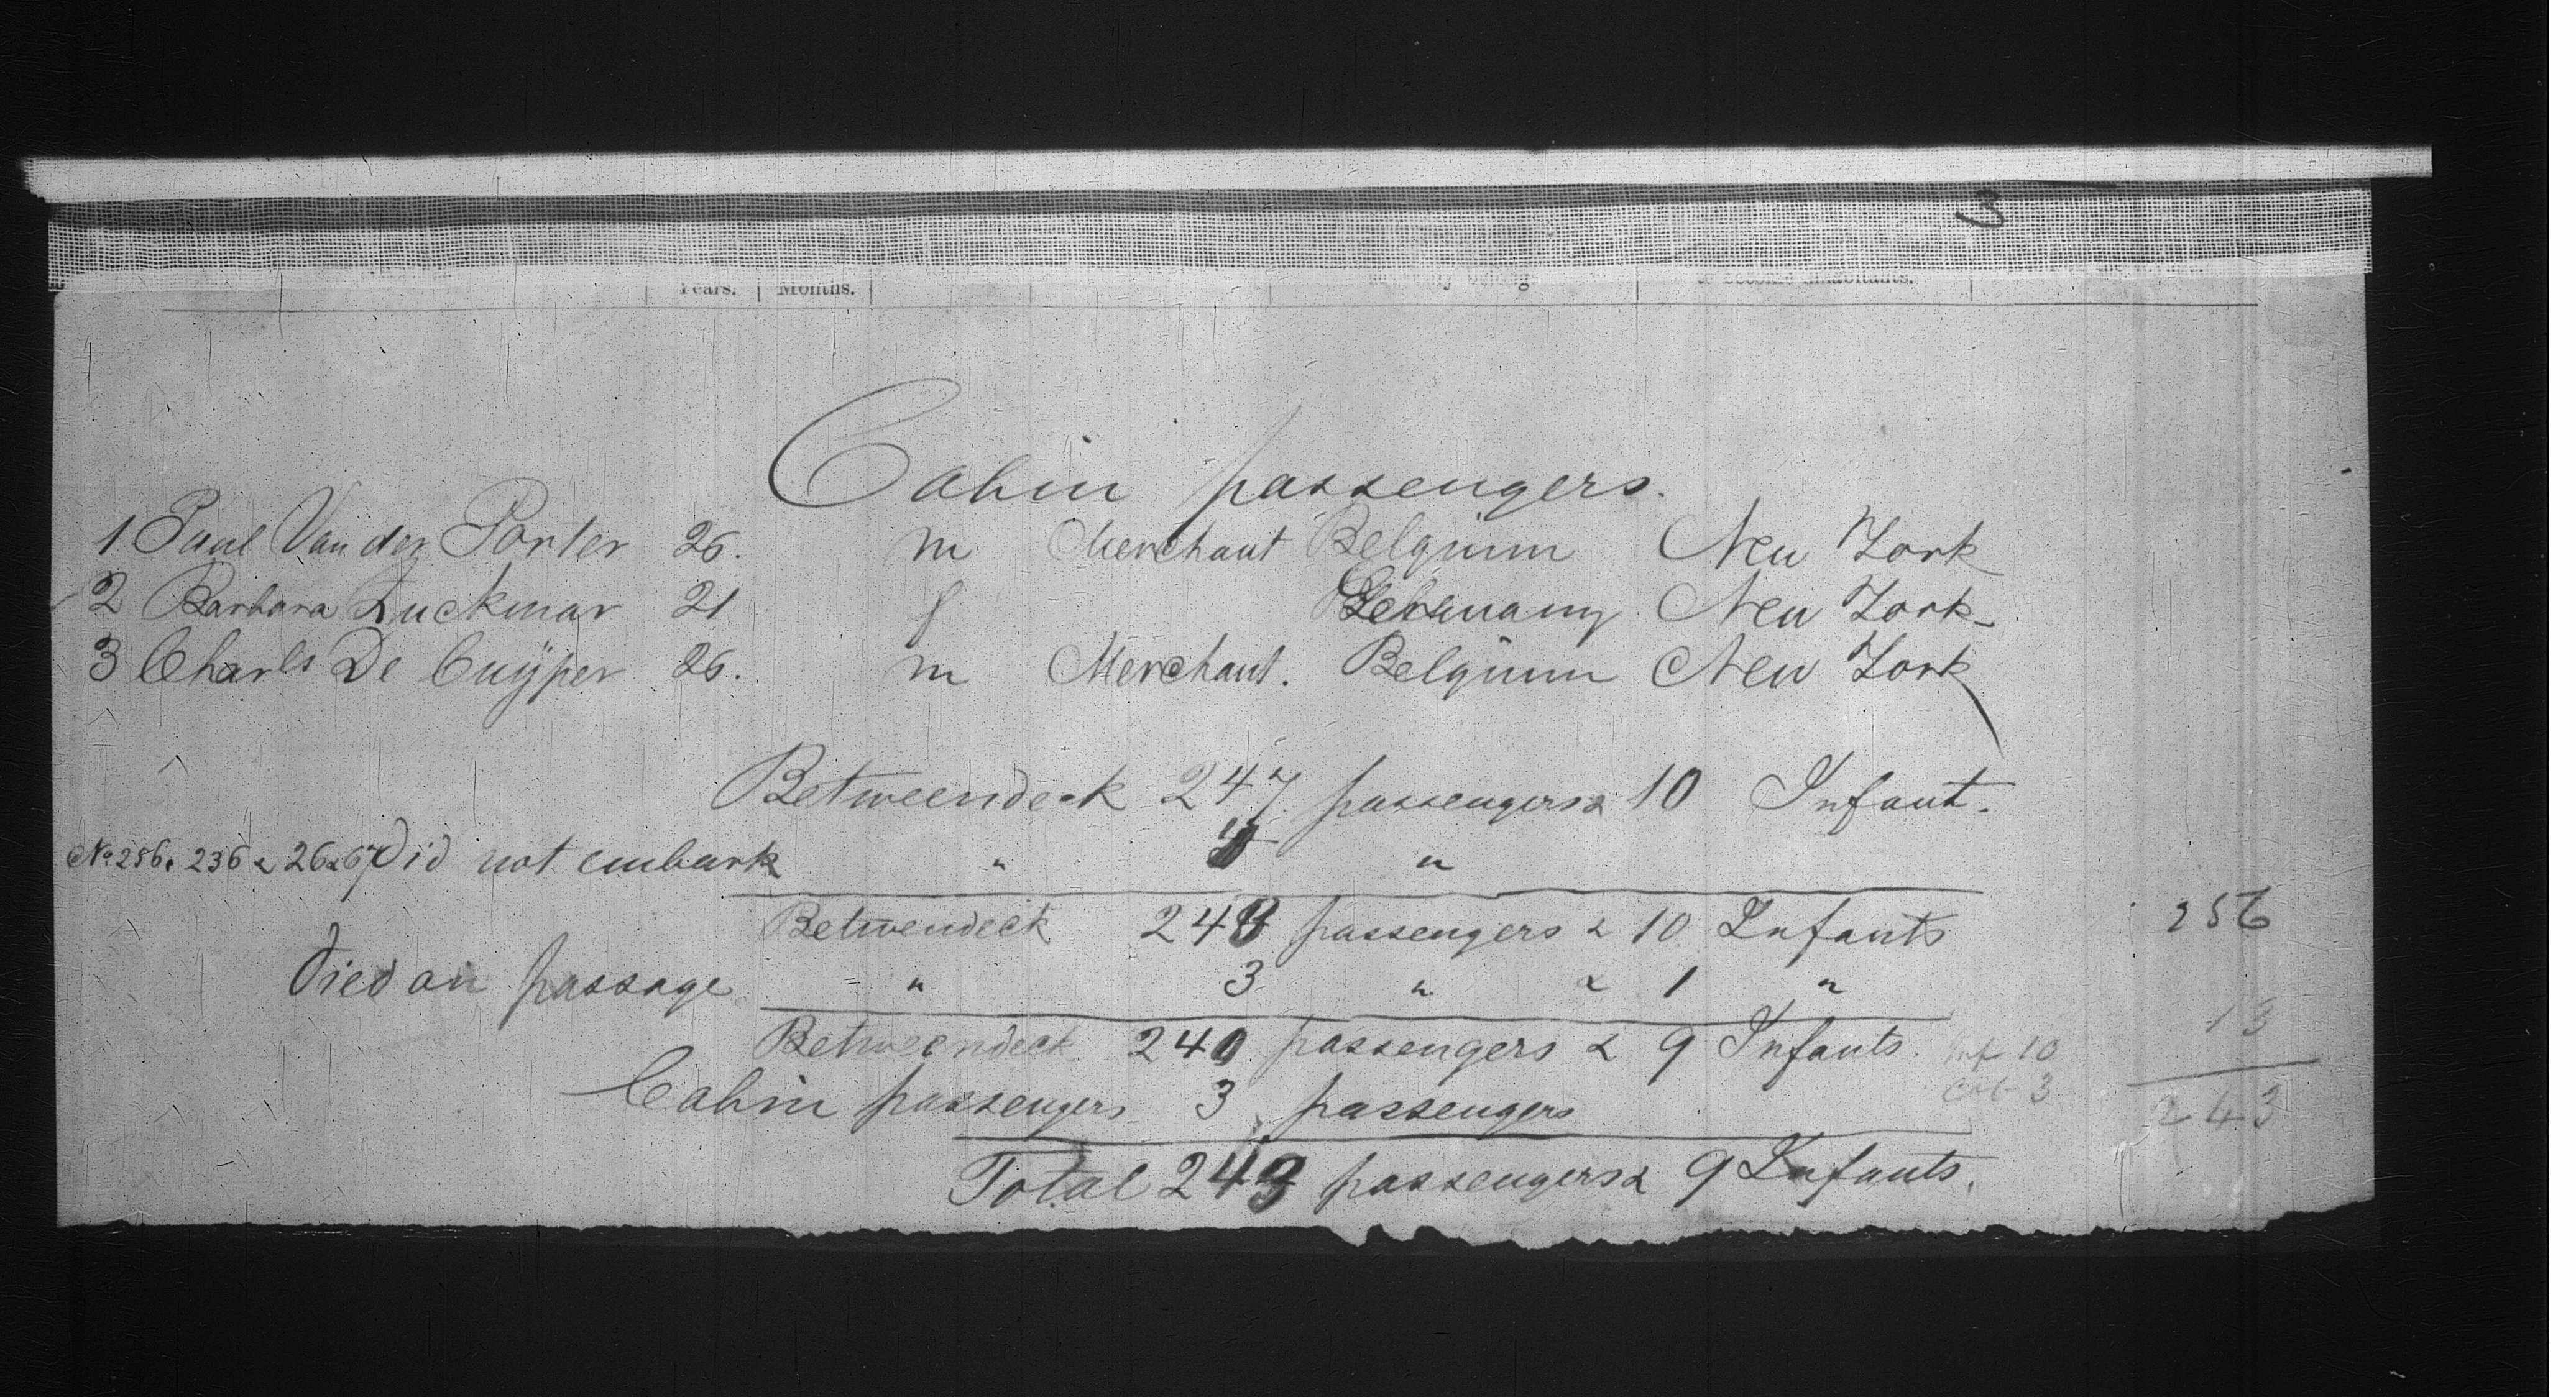 3
Years. Months. to become inhabitants.
Cabin passengers.
1 Paul Van der Porter 26. m Merchant Belgium New York
2 Barbara Luckmar 21 f Germany New York
3 Charls De Cuÿper 26. m Merchant. Belgium New York
Betweendeck 247 passengers & 10 Infant.
No 256. 236 & 26 & 67 Did not embark " 4 "
Betwendeck 243 passengers & 10 Infants 256
Died on passage " 3 " & 1 "
13
Betweendeck 240 passengers & 9 Infants. Inf 10
Cabin passengers 3 passengers Cab 3 243
Total 243 passengers & 9 Infants.